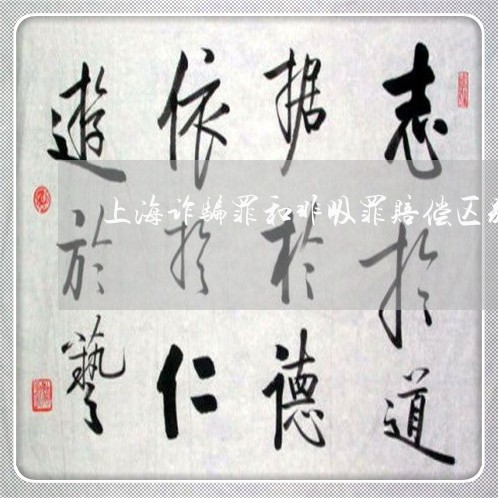 志於道
据於德
依於仁
遊於藝
上海诈骗罪和非吸罪赔偿区